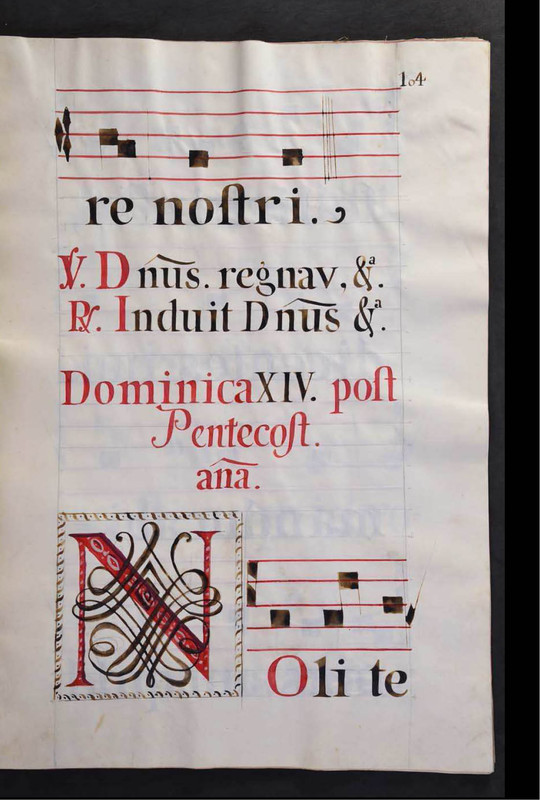 104
re noſtri.
℣. Dnūs. regnav, &ª.
℟. Induit Dnūs &ª.
Dominica XIV. poſt
Pentecoſt.
anā.
NOlite